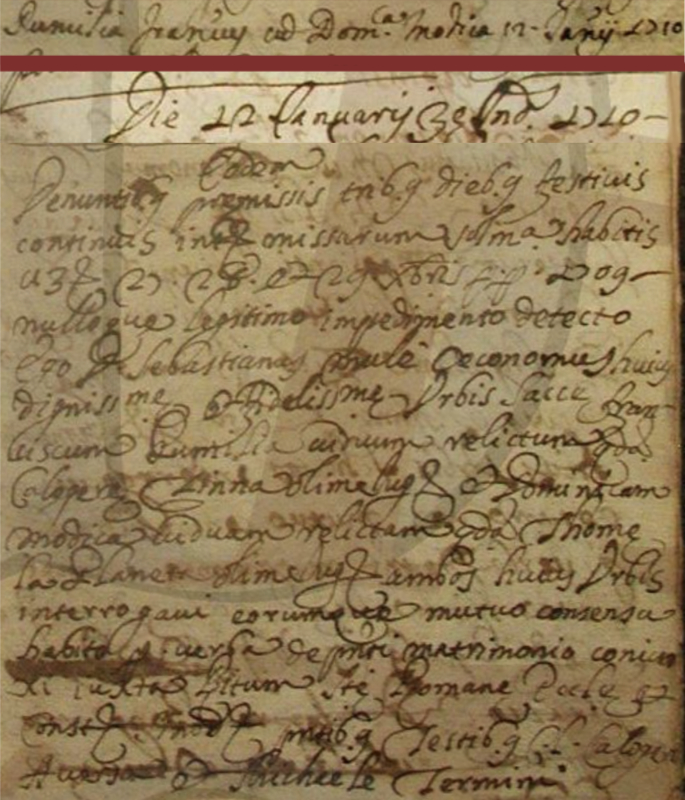 Rumilia Franciscus cum Dom.ca Modica 12 Janrij 1710
Die 12 Januarij 3e Ind. 1710
Eadem
Denuntib.q premissis trib.q dieb.q festivis
continuis int. missarum solmia habitis
27. 28. et 29 Xbris p.p. 1709
nulloque legitimo impedimento detecto
Ego D. Sebastianus Mulè Oeconomus huius
digniss.me et fideliss.me Urbis Sacce Fran
ciscum Rumilia viduum relictum qda
Calogera Zinna olim iug. et Dominicam
Modica viduam relictam qda Thome
la Planeta olim iug. ambos huius Urbis
interrogavi eorumque mutuo consensu
habito p. verba de pnti matrimonio coniun
xi iuxta Ritum Ste Romane Eccle
pntib.q Testib.q Cl. Caloger
Aversa et Michaele Termini